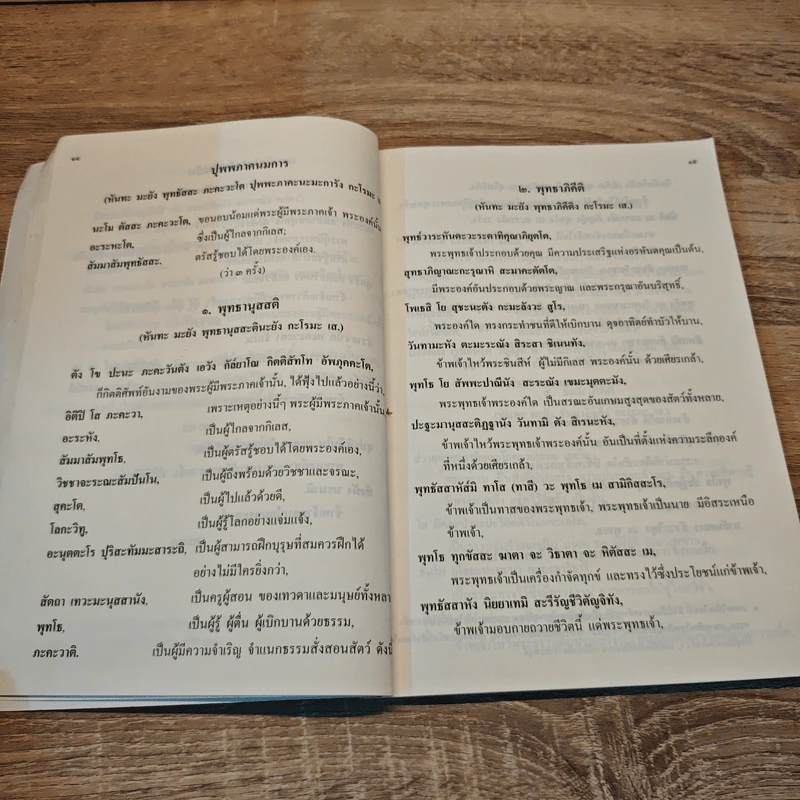 ๑๔
ปุพพภาคนมการ
(หันทะ มะยัง พุทธัสสะ ภะคะวะโต ปุพพะภาคะนะมะการัง กะโรมะ
นะโม ตัสสะ ภะคะวะโต, ขอนอบน้อมแด่พระผู้มีพระภาคเจ้า พระองค์นั้น
อะระหะโต, ซึ่งเป็นผู้ไกลจากกิเลส;
สัมมาสัมพุทธัสสะ. ตรัสรู้ชอบได้โดยพระองค์เอง.
(ว่า ๓ ครั้ง)
๑. พุทธานุสสติ
(หันทะ มะยัง พุทธานุสสะตินะยัง กะโรมะ เส.)
ตัง โข ปะนะ ภะคะวันตัง เอวัง กัล๎ยาโณ กิตติสัทโท อัพภุคคะโต,
ก็กิตติศัพท์อันงามของพระผู้มีพระภาคเจ้านั้น, ได้ฟุ้งไปแล้วอย่างนี้ว่า,
อิติปิ โส ภะคะวา, เพราะเหตุอย่างนี้ๆ พระผู้มีพระภาคเจ้านั้น
อะระหัง, เป็นผู้ไกลจากกิเลส,
สัมมาสัมพุทโธ, เป็นผู้ตรัสรู้ชอบได้โดยพระองค์เอง,
วิชชาจะระณะสัมปันโน, เป็นผู้ถึงพร้อมด้วยวิชชาและจรณะ,
สุคะโต, เป็นผู้ไปแล้วด้วยดี,
โลกะวิทู, เป็นผู้รู้โลกอย่างแจ่มแจ้ง,
อะนุตตะโร ปุริสะทัมมะสาระถิ, เป็นผู้สามารถฝึกบุรุษที่สมควรฝึกได้
อย่างไม่มีใครยิ่งกว่า,
สัตถา เทวะมะนุสสานัง, เป็นครูผู้สอน ของเทวดาและมนุษย์ทั้งหลา
พุทโธ, เป็นผู้รู้ ผู้ตื่น ผู้เบิกบานด้วยธรรม,
ภะคะวาติ. เป็นผู้มีความจำเริญ จำแนกธรรมสั่งสอนสัตว์ ดังนี้
๑๕
๒. พุทธาภิคีติ
(หันทะ มะยัง พุทธาภิคีติง กะโรมะ เส.)
พุทธ๎วาระหันตะวะระตาทิคุณาภิยุตโต,
พระพุทธเจ้าประกอบด้วยคุณ มีความประเสริฐแห่งอรหันตคุณเป็นต้น,
สุทธาภิญาณะกะรุณาหิ สะมาคะตัตโต,
มีพระองค์อันประกอบด้วยพระญาณ และพระกรุณาอันบริสุทธิ์,
โพเธสิ โย สุชะนะตัง กะมะลังวะ สูโร,
พระองค์ใด ทรงกระทำชนที่ดีให้เบิกบาน ดุจอาทิตย์ทำบัวให้บาน,
วันทามะหัง ตะมะระณัง สิระสา ชิเนนทัง,
ข้าพเจ้าไหว้พระชินสีห์ ผู้ไม่มีกิเลส พระองค์นั้น ด้วยเศียรเกล้า,
พุทโธ โย สัพพะปาณีนัง สะระณัง เขมะมุตตะมัง,
พระพุทธเจ้าพระองค์ใด เป็นสรณะอันเกษมสูงสุดของสัตว์ทั้งหลาย,
ปะฐะมานุสสะติฏฐานัง วันทามิ ตัง สิเรนะหัง,
ข้าพเจ้าไหว้พระพุทธเจ้าพระองค์นั้น อันเป็นที่ตั้งแห่งความระลึกองค์
ที่หนึ่งด้วยเศียรเกล้า,
พุทธัสสาหัส๎มิ ทาโส (ทาสี) วะ พุทโธ เม สามิกิสสะโร,
ข้าพเจ้าเป็นทาสของพระพุทธเจ้า, พระพุทธเจ้าเป็นนาย มีอิสระเหนือ
ข้าพเจ้า,
พุทโธ ทุกขัสสะ ฆาตา จะ วิธาตา จะ หิตัสสะ เม,
พระพุทธเจ้าเป็นเครื่องกำจัดทุกข์ และทรงไว้ซึ่งประโยชน์แก่ข้าพเจ้า,
พุทธัสสาหัง นิยยาเทมิ สะรีรัญชีวิตัญจิทัง,
ข้าพเจ้ามอบกายถวายชีวิตนี้ แด่พระพุทธเจ้า,